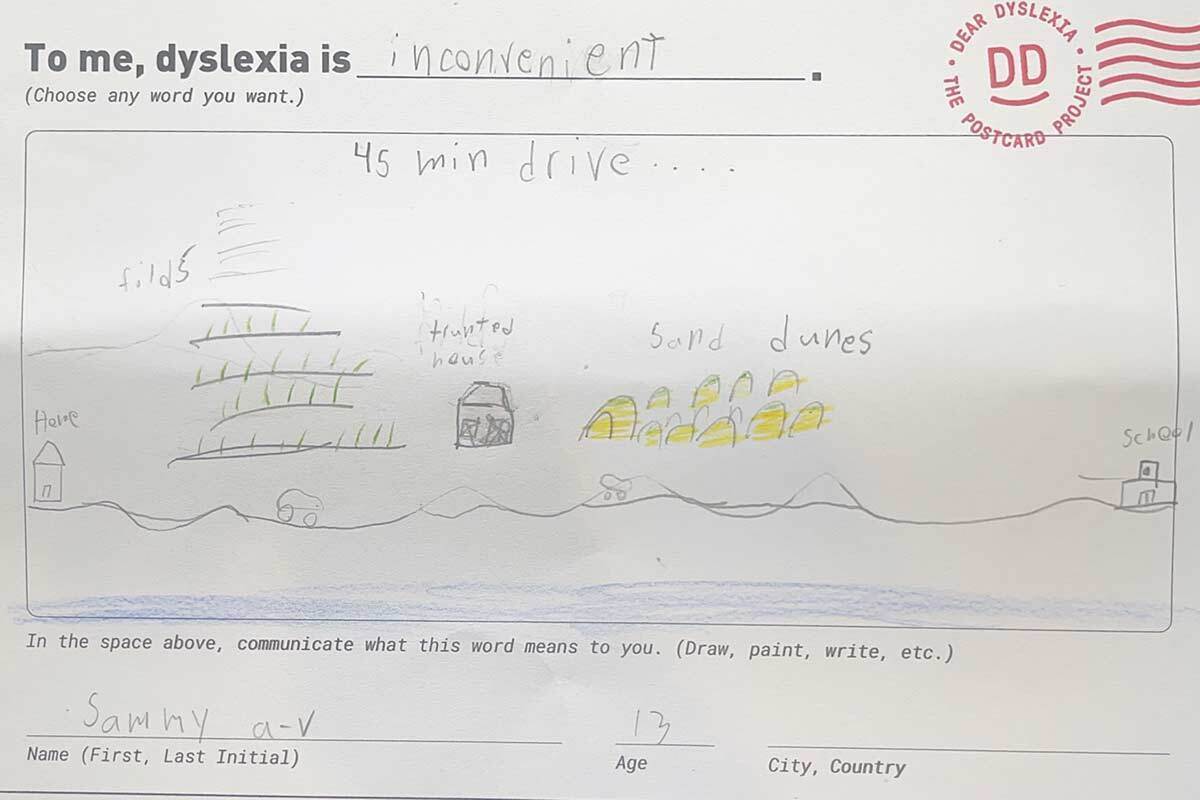 To me, dyslexia is inconvenient.
(Choose any word you want.)
DEAR DYSLEXIA
DD
THE POSTCARD PROJECT
45 min drive ....
filds
house
sand dunes
Home
School
In the space above, communicate what this word means to you. (Draw, paint, write, etc.)
Sammy a-v
13
Name (First, Last Initial)
Age
City, Country